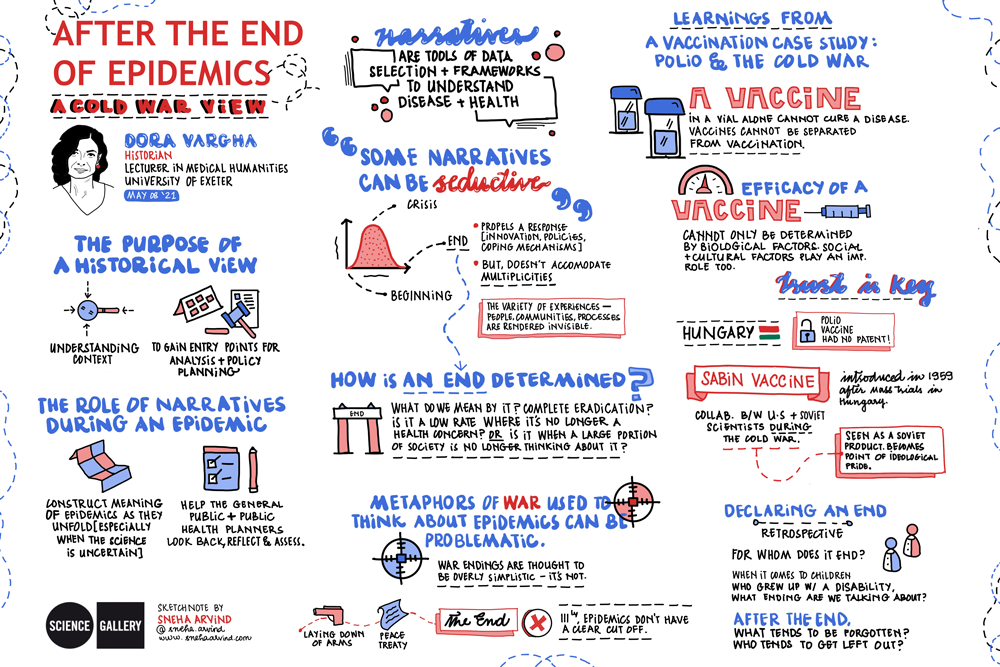 AFTER THE END
OF EPIDEMICS
A COLD WAR VIEW
DORA VARGHA
HISTORIAN
LECTURER IN MEDICAL HUMANITIES
UNIVERSITY OF EXETER
MAY 08 '21
THE PURPOSE OF
A HISTORICAL VIEW
UNDERSTANDING
CONTEXT
TO GAIN ENTRY POINTS FOR
ANALYSIS + POLICY
PLANNING
THE ROLE OF NARRATIVES
DURING AN EPIDEMIC
CONSTRUCT MEANING
OF EPIDEMICS AS THEY
UNFOLD [ESPECIALLY
WHEN THE SCIENCE
IS UNCERTAIN]
HELP THE GENERAL
PUBLIC + PUBLIC
HEALTH PLANNERS
LOOK BACK, REFLECT & ASSESS.
SCIENCE
GALLERY
SKETCHNOTE BY
SNEHA ARVIND
@sneha.arvind
www.snehaarvind.com
narratives
ARE TOOLS OF DATA
SELECTION + FRAMEWORKS
TO UNDERSTAND
DISEASE + HEALTH
“SOME NARRATIVES
CAN BE seductive”
CRISIS
END
BEGINNING
PROPELS A RESPONSE
[INNOVATION, POLICIES,
COPING MECHANISMS]
BUT, DOESN'T ACCOMODATE
MULTIPLICITIES
THE VARIETY OF EXPERIENCES —
PEOPLE, COMMUNITIES, PROCESSES
ARE RENDERED INVISIBLE.
HOW IS AN END DETERMINED?
END
WHAT DO WE MEAN BY IT? COMPLETE ERADICATION?
IS IT A LOW RATE WHERE IT'S NO LONGER A
HEALTH CONCERN? OR IS IT WHEN A LARGE PORTION
OF SOCIETY IS NO LONGER THINKING ABOUT IT?
METAPHORS OF WAR USED TO
THINK ABOUT EPIDEMICS CAN BE
PROBLEMATIC.
WAR ENDINGS ARE THOUGHT TO
BE OVERLY SIMPLISTIC – IT'S NOT.
LAYING DOWN
OF ARMS
PEACE
TREATY
The End
IIIly, EPIDEMICS DON'T HAVE
A CLEAR CUT OFF.
LEARNINGS FROM
A VACCINATION CASE STUDY:
POLIO & THE COLD WAR
A VACCINE
IN A VIAL ALONE CANNOT CURE A DISEASE.
VACCINES CANNOT BE SEPARATED
FROM VACCINATION.
EFFICACY OF A
VACCINE
CANNOT ONLY BE DETERMINED
BY BIOLOGICAL FACTORS. SOCIAL
+ CULTURAL FACTORS PLAY AN IMP.
ROLE TOO.
trust is key
HUNGARY
POLIO
VACCINE
HAD NO PATENT!
SABIN VACCINE
introduced in 1959
after mass trials in
Hungary.
COLLAB. B/W U.S + SOVIET
SCIENTISTS DURING
THE COLD WAR.
SEEN AS A SOVIET
PRODUCT. BECOMES
POINT OF IDEOLOGICAL
PRIDE.
DECLARING AN END
RETROSPECTIVE
FOR WHOM DOES IT END?
WHEN IT COMES TO CHILDREN
WHO GREW UP W/ A DISABILITY,
WHAT ENDING ARE WE TALKING ABOUT?
AFTER THE END,
WHAT TENDS TO BE FORGOTTEN?
WHO TENDS TO GET LEFT OUT?